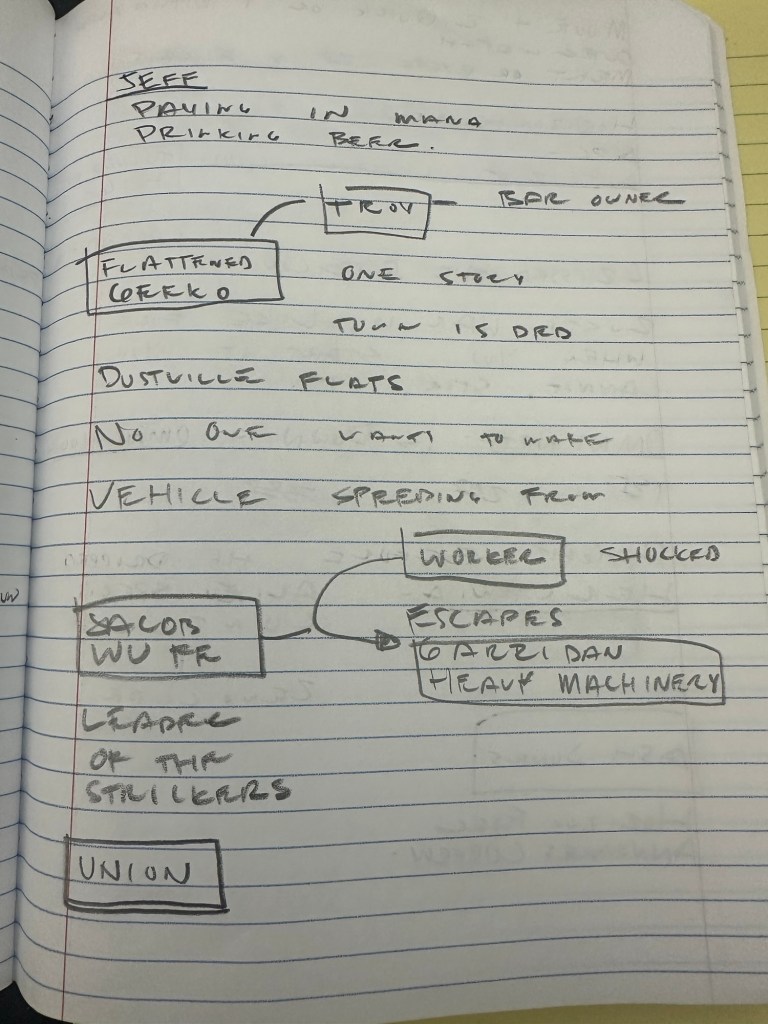 JEFF
PAYING IN MANA
DRINKING BEER.
TROY — BAR OWNER
FLATTENED
GEEKO
ONE STORY
TOWN IS DRD
DUSTVILLE FLATS
NO ONE WANTS TO WAKE
VEHICLE SPEEDING FROM
WORKER SHOCKED
JACOB
ESCAPES
GARZIDAN
HEAVY MACHINERY
LEADER
OF THE
STRIKERS
UNION